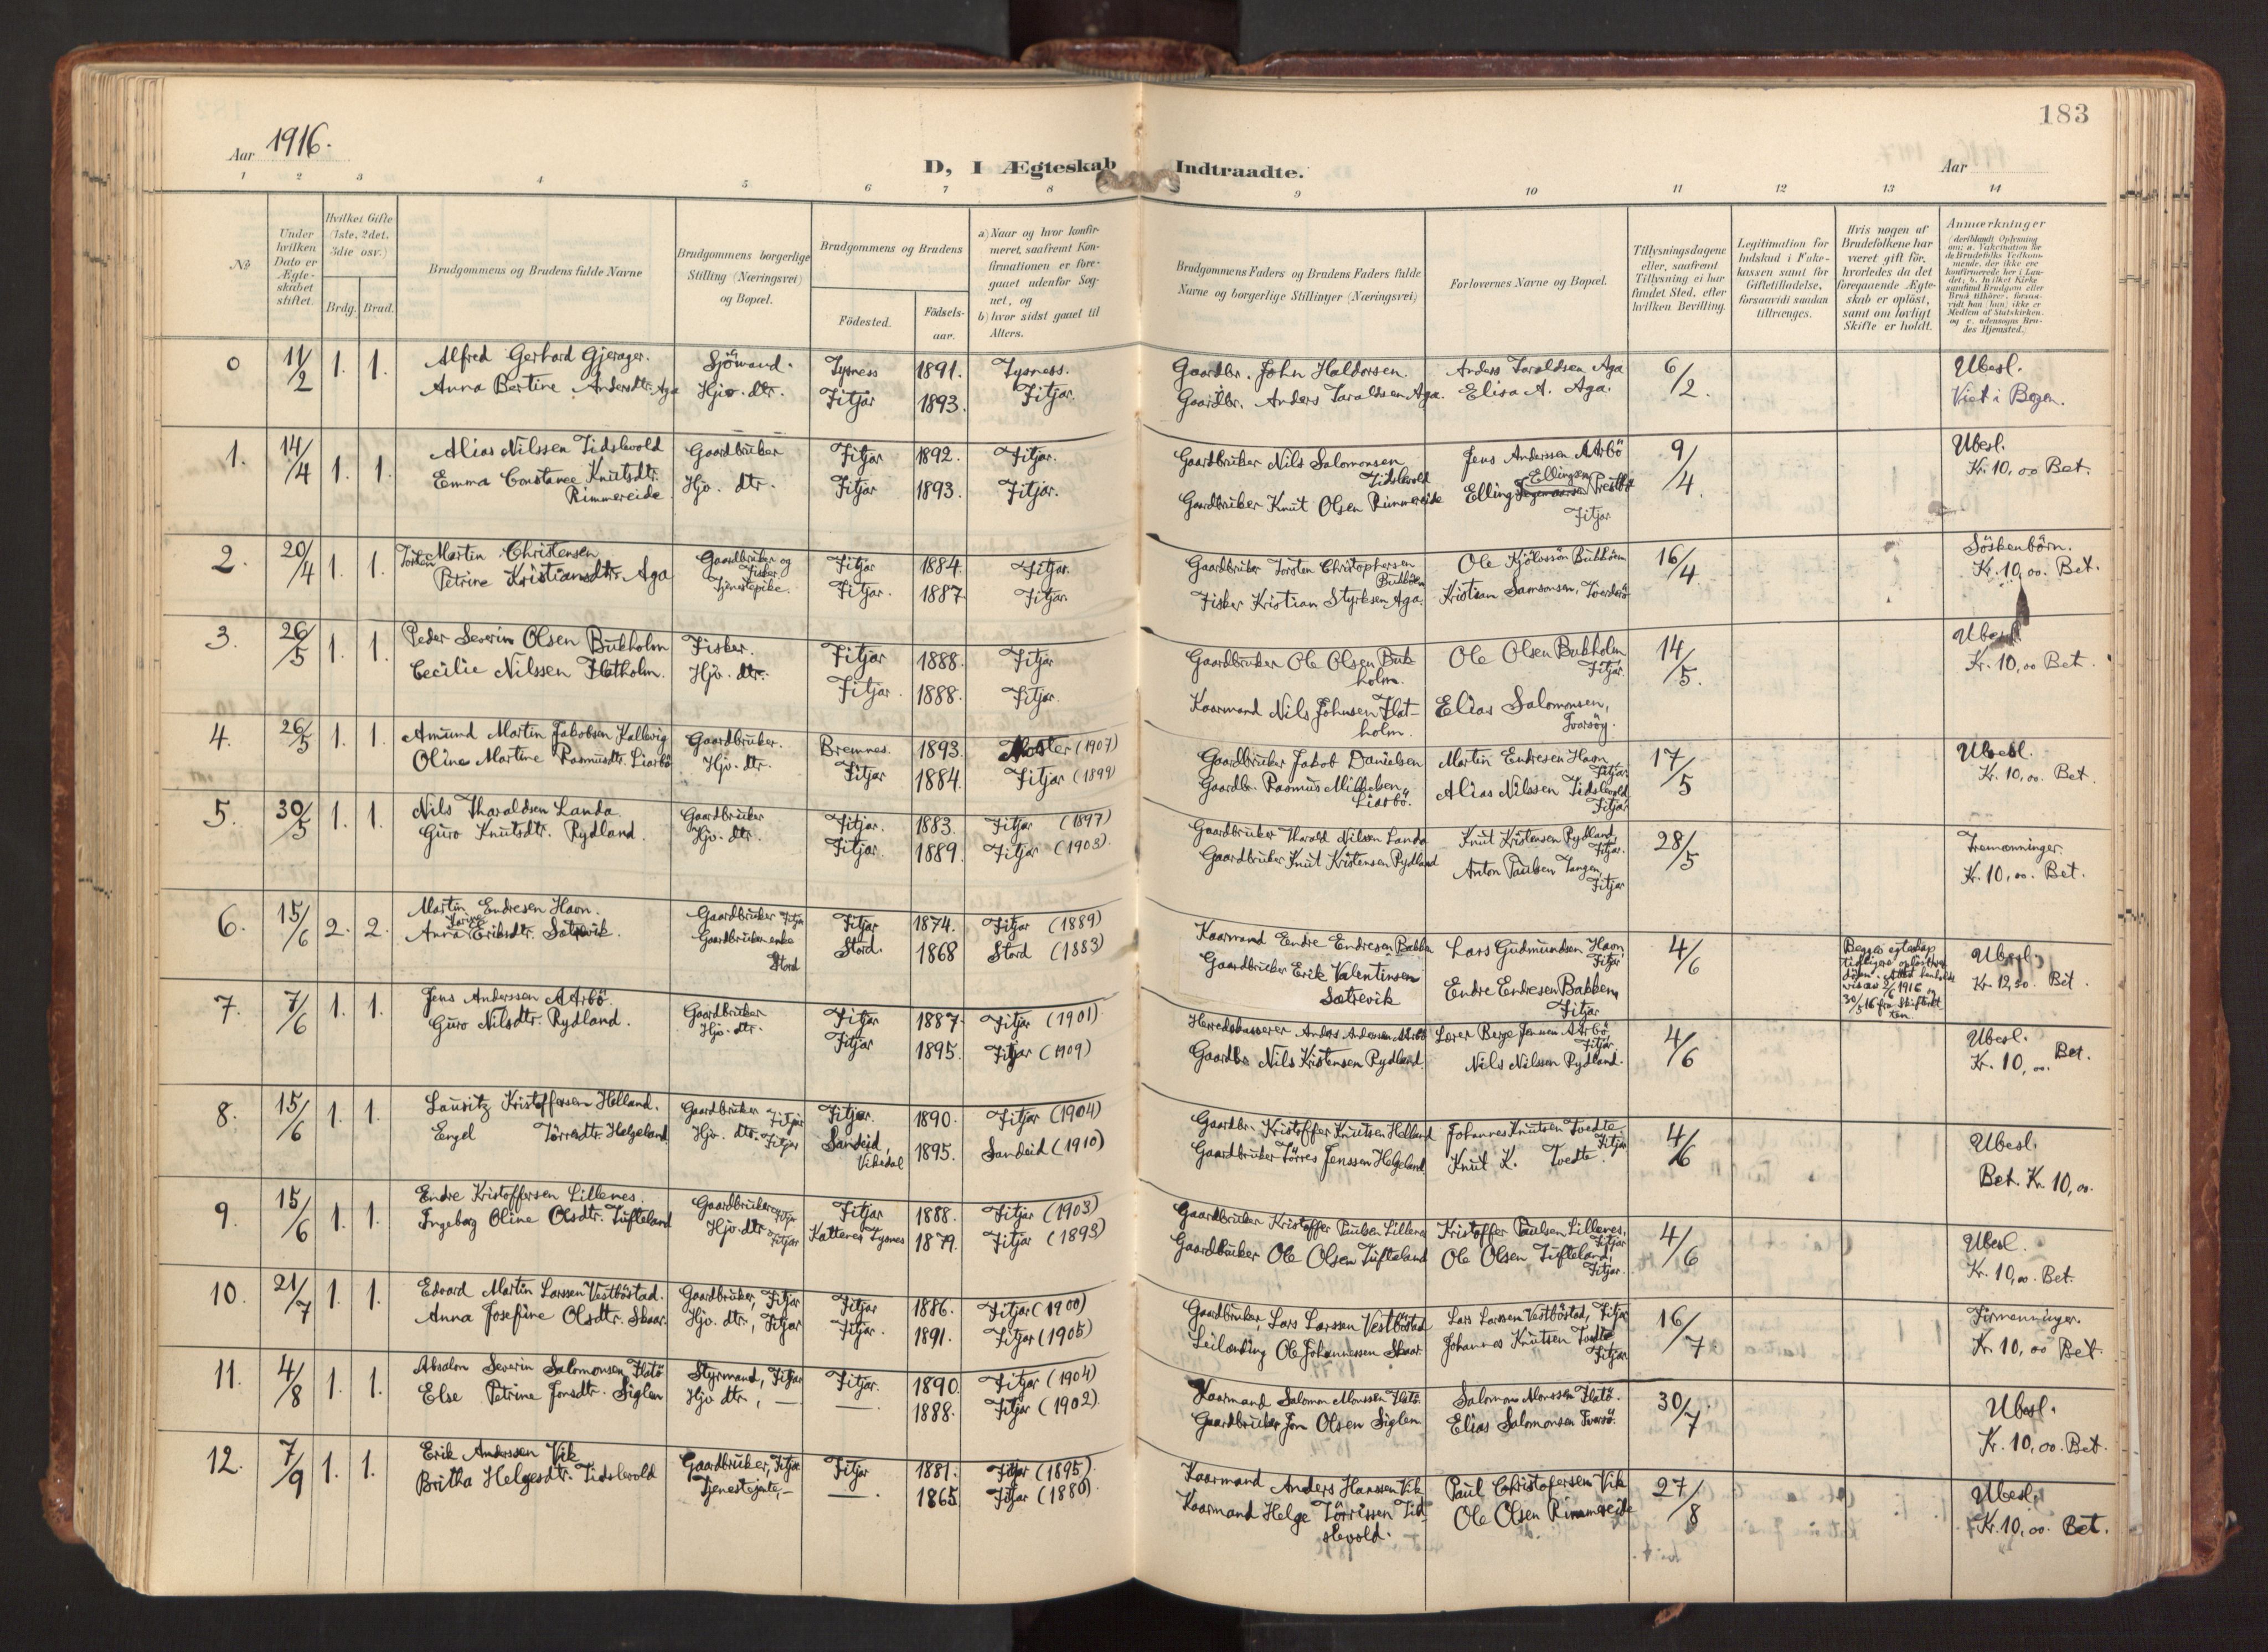 183
Aar 1916.
D, I Ægteskab Indtraadte.
Aar
1 2 3 4 5 6 7 8 9 10 11 12 13 14
No
Under hvilken Dato er Ægteskabet stiftet.
Hvilket Gifte (1ste, 2det, 3die osv.)
Brdg. Brud.
Brudgommens og Brudens fulde Navne
Brudgommens borgerlige Stilling (Næringsvei) og Bopæl.
Brudgommens og Brudens
Födested.
Födselsaar.
a) Naar og hvor konfirmeret, saafremt Konfirmationen er foregaaet udenfor Sognet, og
b) hvor sidst gaaet til Alters.
Brudgommens Faders og Brudens Faders fulde Navne og borgerlige Stillinger (Næringsvei)
Forlovernes Navne og Bopæl.
Tillysningsdagene eller, saafremt Tillysning ei har fundet Sted, efter hvilken Bevilling.
Legitimation for Indskud i Enkekassen samt for Giftetilladelse, forsaavidt saadan tiltrænges.
Hvis nogen af Brudefolkene har været gift för, hvorledes da det foregaaende Ægteskab er oplöst, samt om lovligt Skifte er holdt.
Anmærkninger
0 11/2 1. 1. Alfred Gerhard Gjerager. Sjömand. Tysness 1891. Tysness. Gaardbr. John Haldorsen. Anders Taraldsen Aga 6/2. Ubesl.
Anna Bertine Andersdtr. Aga Hjv. dtr. Fitjar 1893. Fitjar. Gaardbr. Anders Taraldsen Aga. Elisa A. Aga. Viet i Bergen.
1. 14/4 1. 1. Alias Nilssen Tidslevold Gaardbruker Fitjar 1892. Fitjar. Gaardbruker Nils Salomonsen Tidslevold Jens Anderssen AArbö 9/4 Ubesl.
Emma Constance Knutsdtr. Rimmereide Hjv. dtr. Fitjar 1893. Fitjar. Gaardbruker Knut Olsen Rimmereide Elling Ellingsen Prestbö Fitjar Kr. 10,00 Bet.
2. 20/4 1. 1. Torsten Martin Christensen Gaardbruker og Fisker Fitjar 1884. Fitjar. Gaardbruker Torsten Christophersen Bukholm Ole Kjölossön Bukholm 16/4 Söskenbörn.
Petrine Kristiansdtr. Aga Tjenestepike. Fitjar. 1887 Fitjar. Fisker Kristian Styrksen Aga. Kristian Samsonsen, Kr. 10,00. Bet.
3. 26/5 1. 1. Peder Severin Olsen Bukholm Fisker. Fitjar 1888. Fitjar Gaardbruker Ole Olsen Bukholm. Ole Olsen Bukholm Fitjar. 14/5. Ubesl.
Cecilie Nilssen Flatholm. Hjv. dtr. Fitjar. 1888. Fitjar. Kaarmand Nils Johnsen Flatholm. Elias Salomonsen, Ivarsöy. Kr. 10,00 Bet.
4. 26/5 1. 1. Amund Martin Jakobsen Kallevig Gaardbruker. Bremnes. 1893. Moster (1907) Gaardbruker Jakob Danielsen Martin Endresen Havn, Fitjar 17/5 Ubesl.
Oline Martine Rasmusdtr. Liarbö Hjv. dtr. Fitjar 1884. Fitjar (1899) Gaardbr. Rasmus Mikkelsen Liarbö. Alias Nilssen Tidslevold Fitjar Kr. 10,00. Bet.
5. 30/5 1. 1. Nils Tharaldsen Landa. Gaardbruker Fitjar. 1883. Fitjar (1897) Gaardbruker Tharald Nilsen Landa Knut Kristensen Rydland, Fitjar. 28/5 Tremænninger.
Guro Knutsdtr. Rydland. Hjv. dtr. Fitjar. 1889. Fitjar (1903). Gaardbruker Knut Kristensen Rydland Anton Paulsen Tangen, Fitjar Kr. 10,00. Bet.
6. 15/6 2. 2. Martin Endresen Havn. Gaardbruker Fitjar Fitjar 1874. Fitjar (1889) Kaarmand Endre Endresen Bakken Lars Gudmundsen Havn Fitjar 4/6 Ubesl.
Anna Karine Eriksdtr. Sætrevik. Gaardbrukerenke Stord Stord. 1868 Stord (1883) Gaardbruker Erik Valentinsen Sætrevik Endre Endresen Bakken, Fitjar Kr. 12,50. Bet.
7. 7/6 1. 1. Jens Anderssen AArbö. Gaardbruker Fitjar 1887. Fitjar (1901) Heredskasserer Anders Andersen AArbö Lærer Berge Jensen AArbö, Fitjar 4/6 Ubesl.
Guro Nilsdtr. Rydland. Hjv. dtr. Fitjar 1895. Fitjar (1909) Gaardbr. Nils Kristensen Rydland. Nils Nilssen Rydland. Kr. 10,00. Bet.
8. 15/6 1. 1. Lausitz Kristoffersen Helland. Gaardbruker Fitjar Fitjar. 1890. Fitjar (1904) Gaardbr. Kristoffer Knutsen Helland Johannes Knutsen Tvedte Fitjar 4/6 Ubesl.
Engel Törresdtr. Helgeland Hjv. dtr. Fitjar Sandeid, Vikedal 1895. Sandeid (1910) Gaardbruker Törres Jenssen Helgeland Knut K. Tvedte. Bet. Kr. 10,00.
9. 15/6 1. 1. Endre Kristoffersen Lillenes. Gaardbruker Fitjar Fitjar 1888. Fitjar (1903) Gaardbruker Kristoffer Paulsen Lillenes Kristoffer Paulsen Lillenes, Fitjar 4/6 Ubesl.
Ingeborg Oline Olsdtr. Tufteland Hjv. dtr. Fitjar Kattenes Tysnes 1879. Fitjar (1893) Gaardbruker Ole Olsen Tufteland Ole Olsen Tufteland, Fitjar. Kr. 10,00. Bet.
10. 21/7 1. 1. Edvard Martin Larssen Vestböstad. Gaardbruker, Fitjar Fitjar 1886. Fitjar (1900) Gaardbruker, Lars Larssen Vestböstad Lars Larssen Vestböstad, Fitjar 16/7 Firmenninger.
Anna Josefine Olsdtr. Skaar. Hjv. dtr., Fitjar Fitjar. 1891. Fitjar (1905) Leilænding Ole Johannessen Skaar. Johannes Knutsen Tvedte Fitjar Kr. 10,00 Bet.
11. 4/8 1. 1. Absalon Severin Salomonsen Flatö Styrmand, Fitjar Fitjar. 1890. Fitjar (1904) Kaarmand Salomon Monssen Flatö. Salomon Monssen Flatö. 30/7 Ubesl.
Else Petrine Jonsdtr. Siglen Hjv dtr, — — 1888. Fitjar (1902) Gaardbruker Jon Olsen Siglen Elias Salomonsen Ivarsö. Kr. 10,00. Bet.
12. 7/9 1. 1. Erik Anderssen Vik Gaardbruker, Fitjar Fitjar 1881. Fitjar (1895). Kaarmand Anders Hanssen Vik Paul Christofersen Vik 27/8 Ubesl.
Britha Helgesdtr. Tidslevold Tjenestejente, — —. 1865 Fitjar (1880). Kaarmand Helge Törrissen Tidslevold. Ole Olsen Rimmereide Kr. 10,00. Bet.